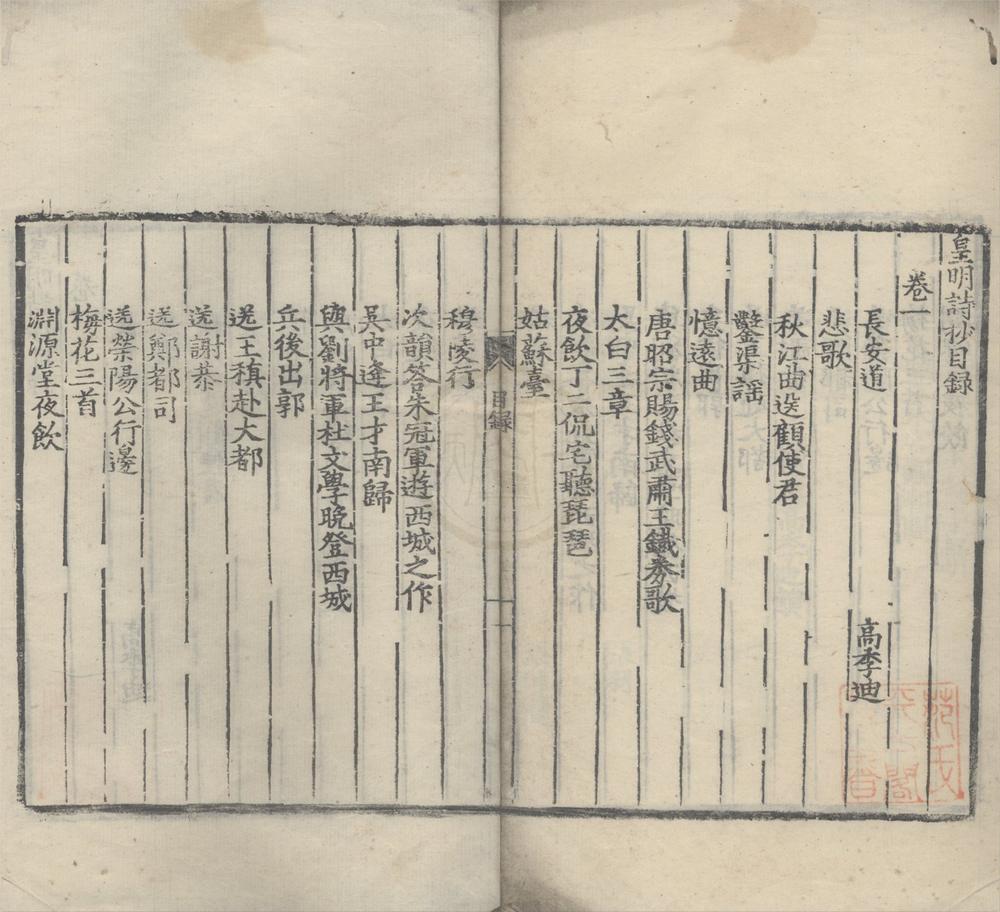 皇明詩抄目録
卷一
長安道 高季迪
悲歌
秋江曲送顧使君
鑿渠謡
憶遠曲
唐昭宗賜錢武肅王鐵券歌
太白三章
夜飲丁二侃宅聽琵琶
姑蘇臺
目録
一
穆陵行
次韻答朱冠軍遊西城之作
吳中逢王才南歸
與劉將軍杜文學晚登西城
兵後出郭
送王稹赴大都
送謝恭
送鄭都司
送滎陽公行邊
梅花三首
淵源堂夜飲